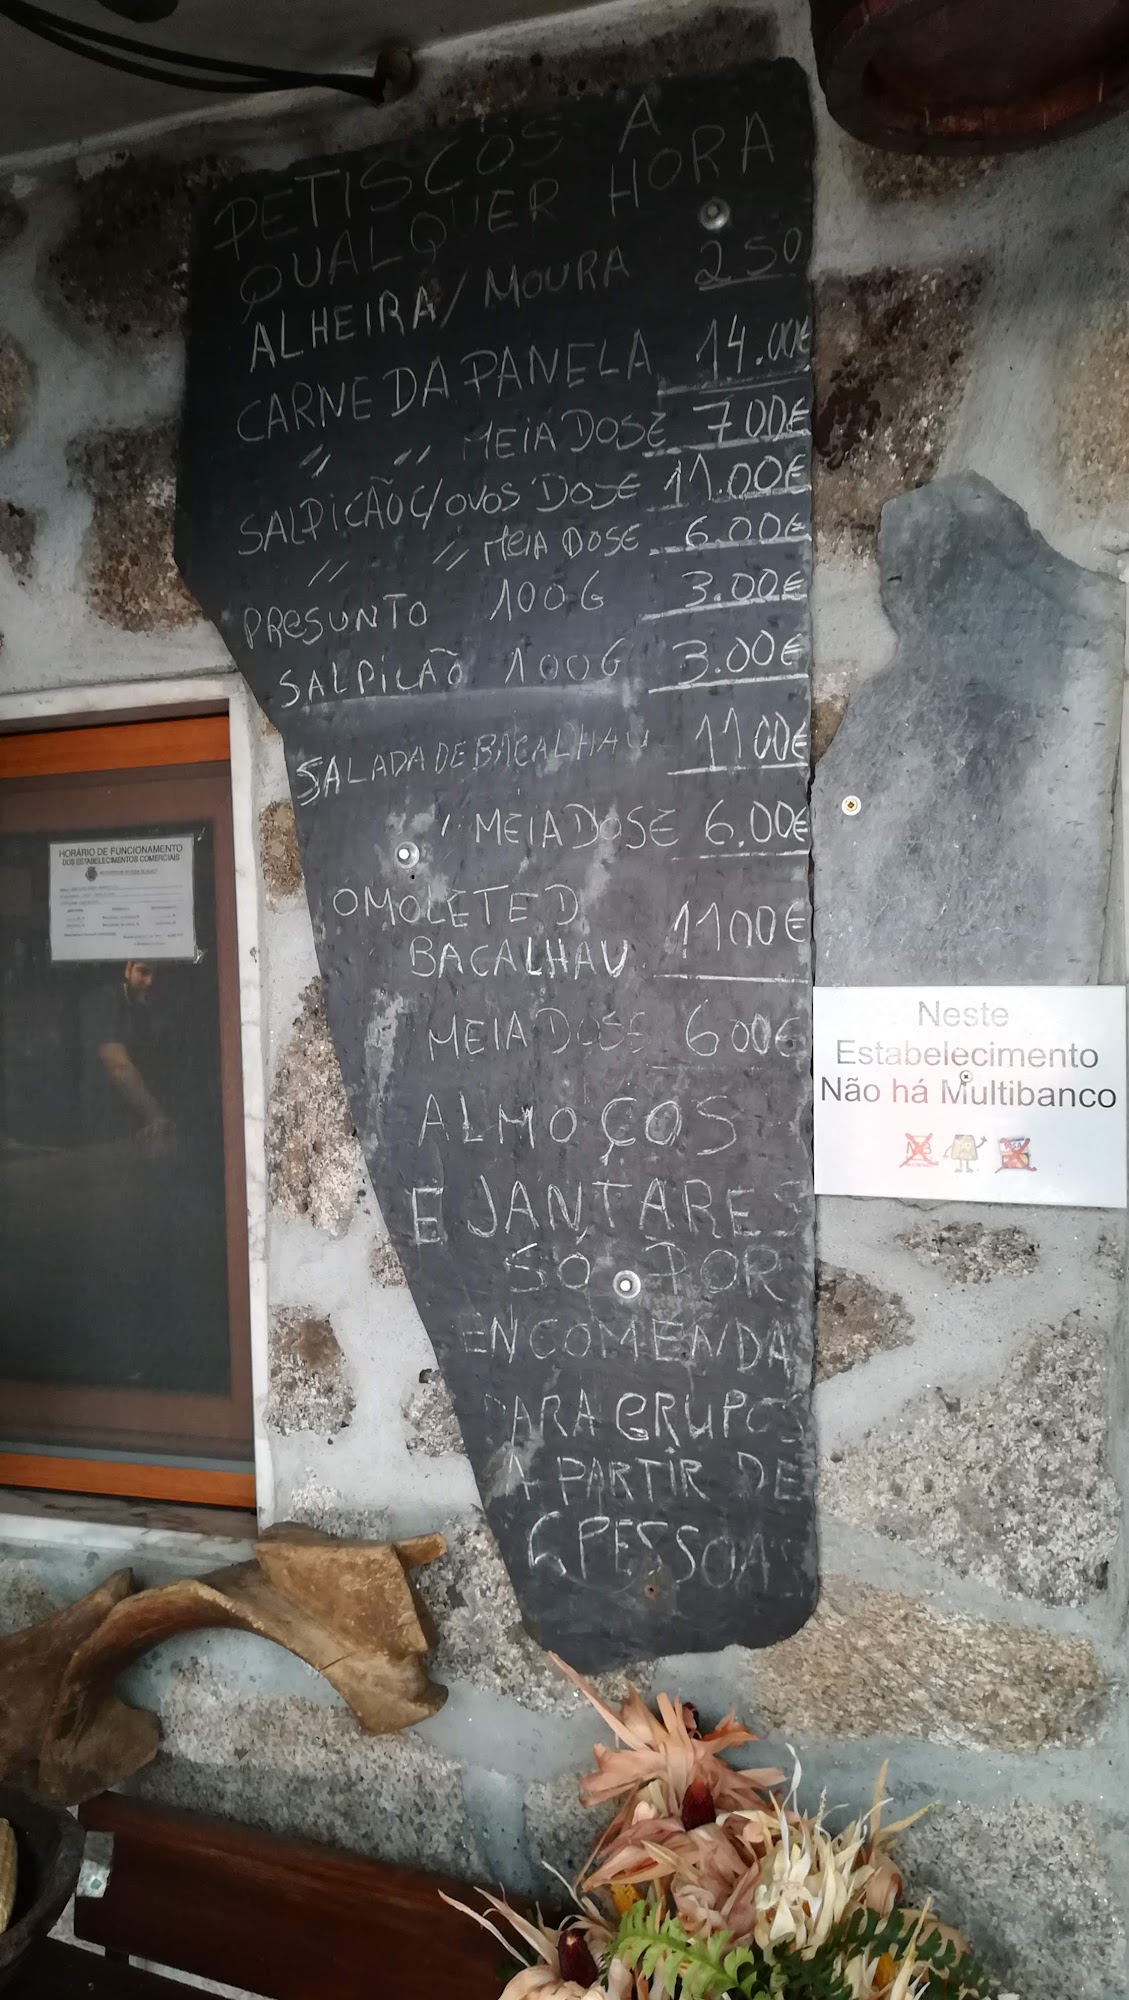 PETISCOS A
QUALQUER HORA
ALHEIRA/MOURA 2 50
CARNE DA PANELA 14.00€
" " MEIA DOSE 7 00€
SALPICÃO C/OVOS DOSE 11.00€
" " MEIA DOSE 6.00€
PRESUNTO 100G 3.00€
SALPICÃO 100G 3.00€
SALADA DE BACALHAU 11 00€
" MEIA DOSE 6.00€
OMOLETE D
BACALHAU 11 00€
MEIA DOSE 6 00€
ALMOÇOS
E JANTARES
SÓ POR
ENCOMENDA
PARA GRUPOS
A PARTIR DE
6 PESSOAS
HORÁRIO DE FUNCIONAMENTO
DOS ESTABELECIMENTOS COMERCIAIS
Neste
Estabelecimento
Não há Multibanco